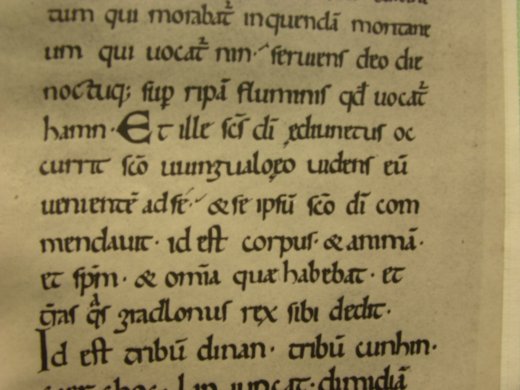 tum qui morabat᷑ in quendā montane
um qui uocat᷑ nin·seruiens deo die
noctuq; sup̄ ripā fluminis qd̄ uocat᷑
hamn· Et ille sc̄s dī ediunetus oc
currit sc̄o uuingualoeo uidens eū
ueniente᷑ ad se· & se ipsū sc̄o dī com
mendauit· id est corpus· & animā·
et sp̄m· & omīa quæ habebat· et
gr̄as qͣs gradlonus rex sibi dedit·
Id est tribū dinan· tribū cunhin·